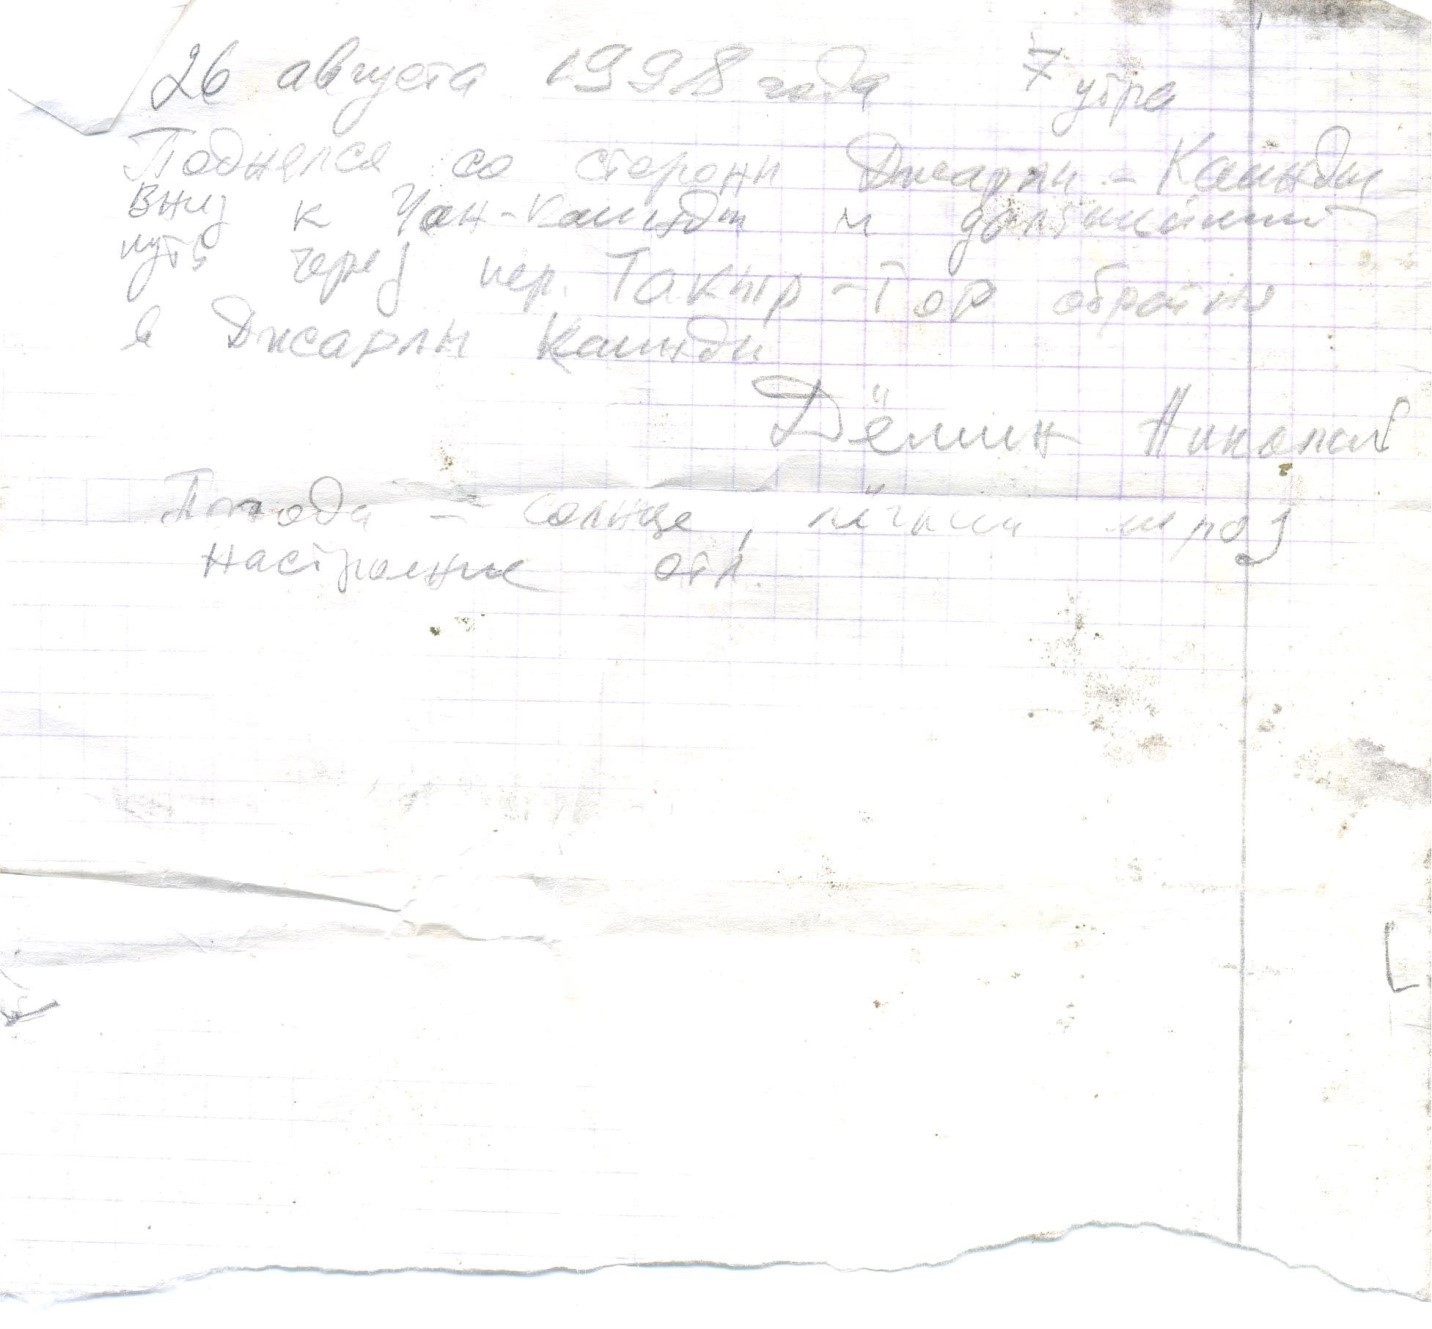 26 августа 1998 года 7 утра
Поднялся со стороны Джарлы-Каинды
вниз к Чон-Каинды и дальнейший
путь через пер. Такыр-Тор обратно
в Джарлы Каинды
Дёмин Николай
Погода - солнце, лёгкий мороз
настроение отл.